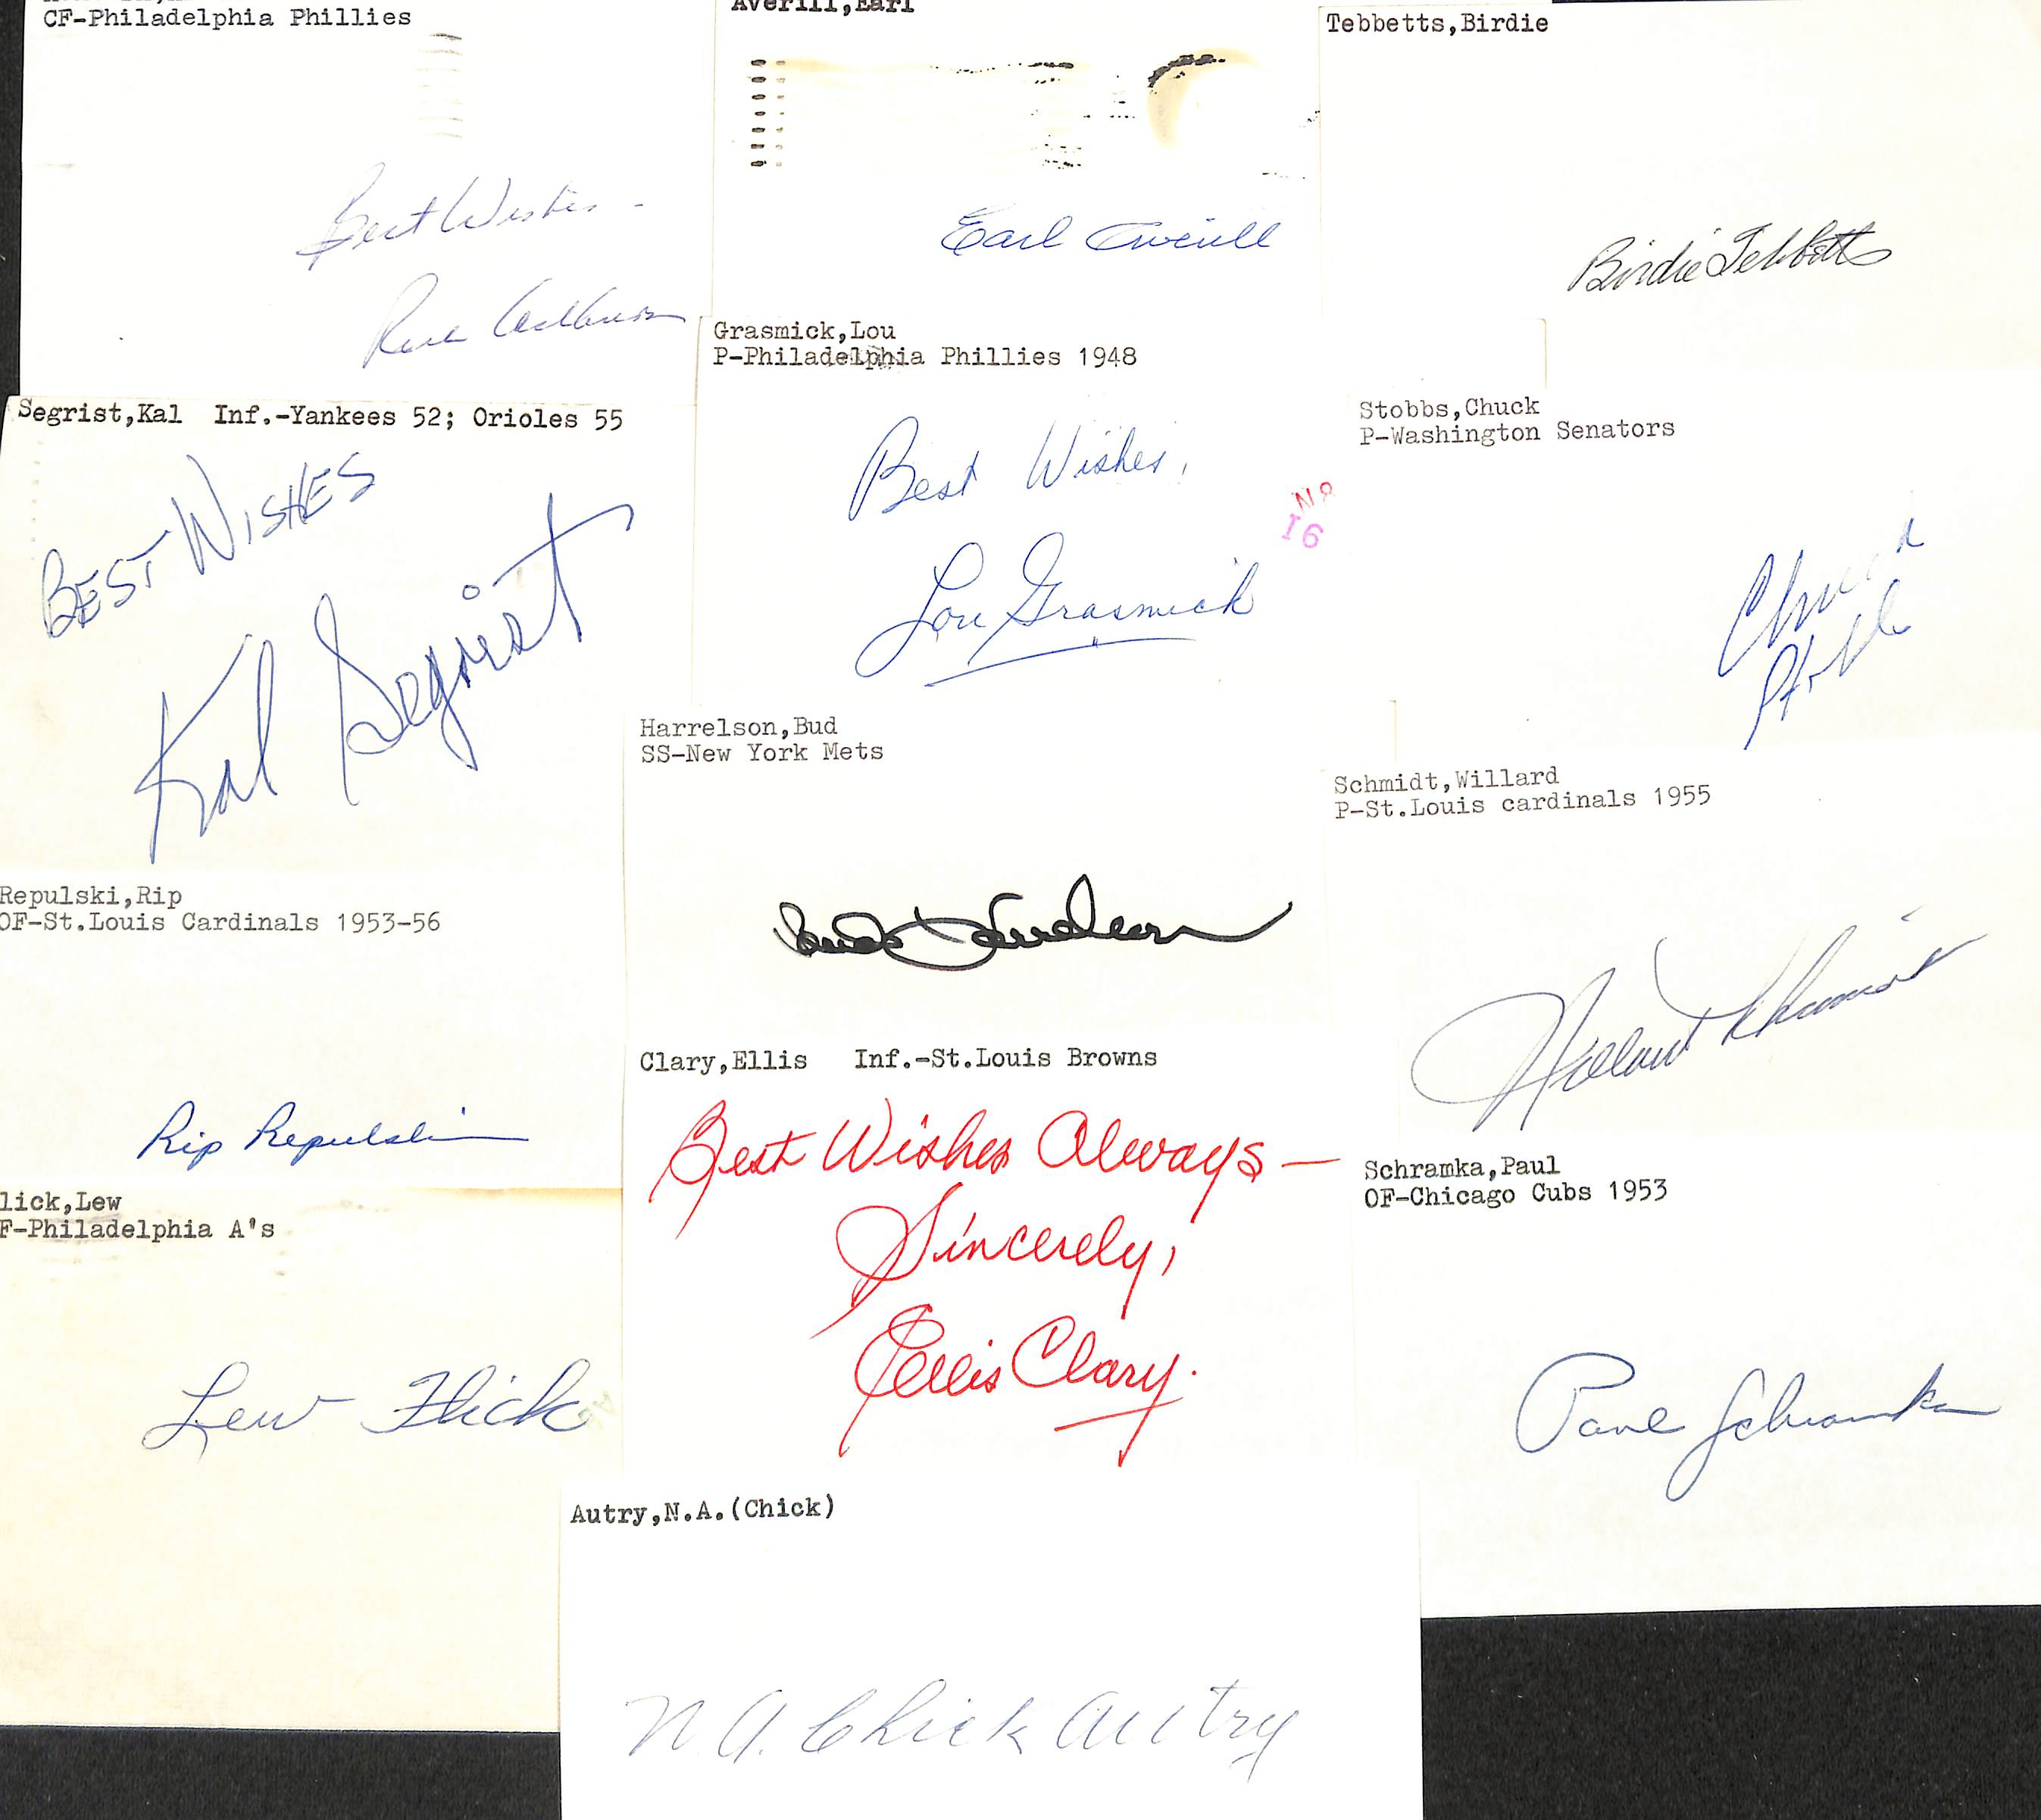 CF-Philadelphia Phillies
Best Wishes -
Averill,Earl
Earl Averill
Tebbetts,Birdie
Birdie Tebbetts
Grasmick,Lou
P-Philadelphia Phillies 1948
Best Wishes,
Lou Grasmick
16
Segrist,Kal Inf.-Yankees 52; Orioles 55
BEST WISHES
Kal Segrist
Stobbs,Chuck
P-Washington Senators
Chuck
Stobbs
Harrelson,Bud
SS-New York Mets
Bud Harrelson
Schmidt,Willard
P-St.Louis cardinals 1955
Willard Schmidt
Repulski,Rip
OF-St.Louis Cardinals 1953-56
Rip Repulski
Clary,Ellis Inf.-St.Louis Browns
Best Wishes Always —
Sincerely,
Ellis Clary.
Schramka,Paul
OF-Chicago Cubs 1953
Paul Schramka
lick,Lew
F-Philadelphia A's
Lew Flick
Autry,N.A.(Chick)
N.A. Chick Autry